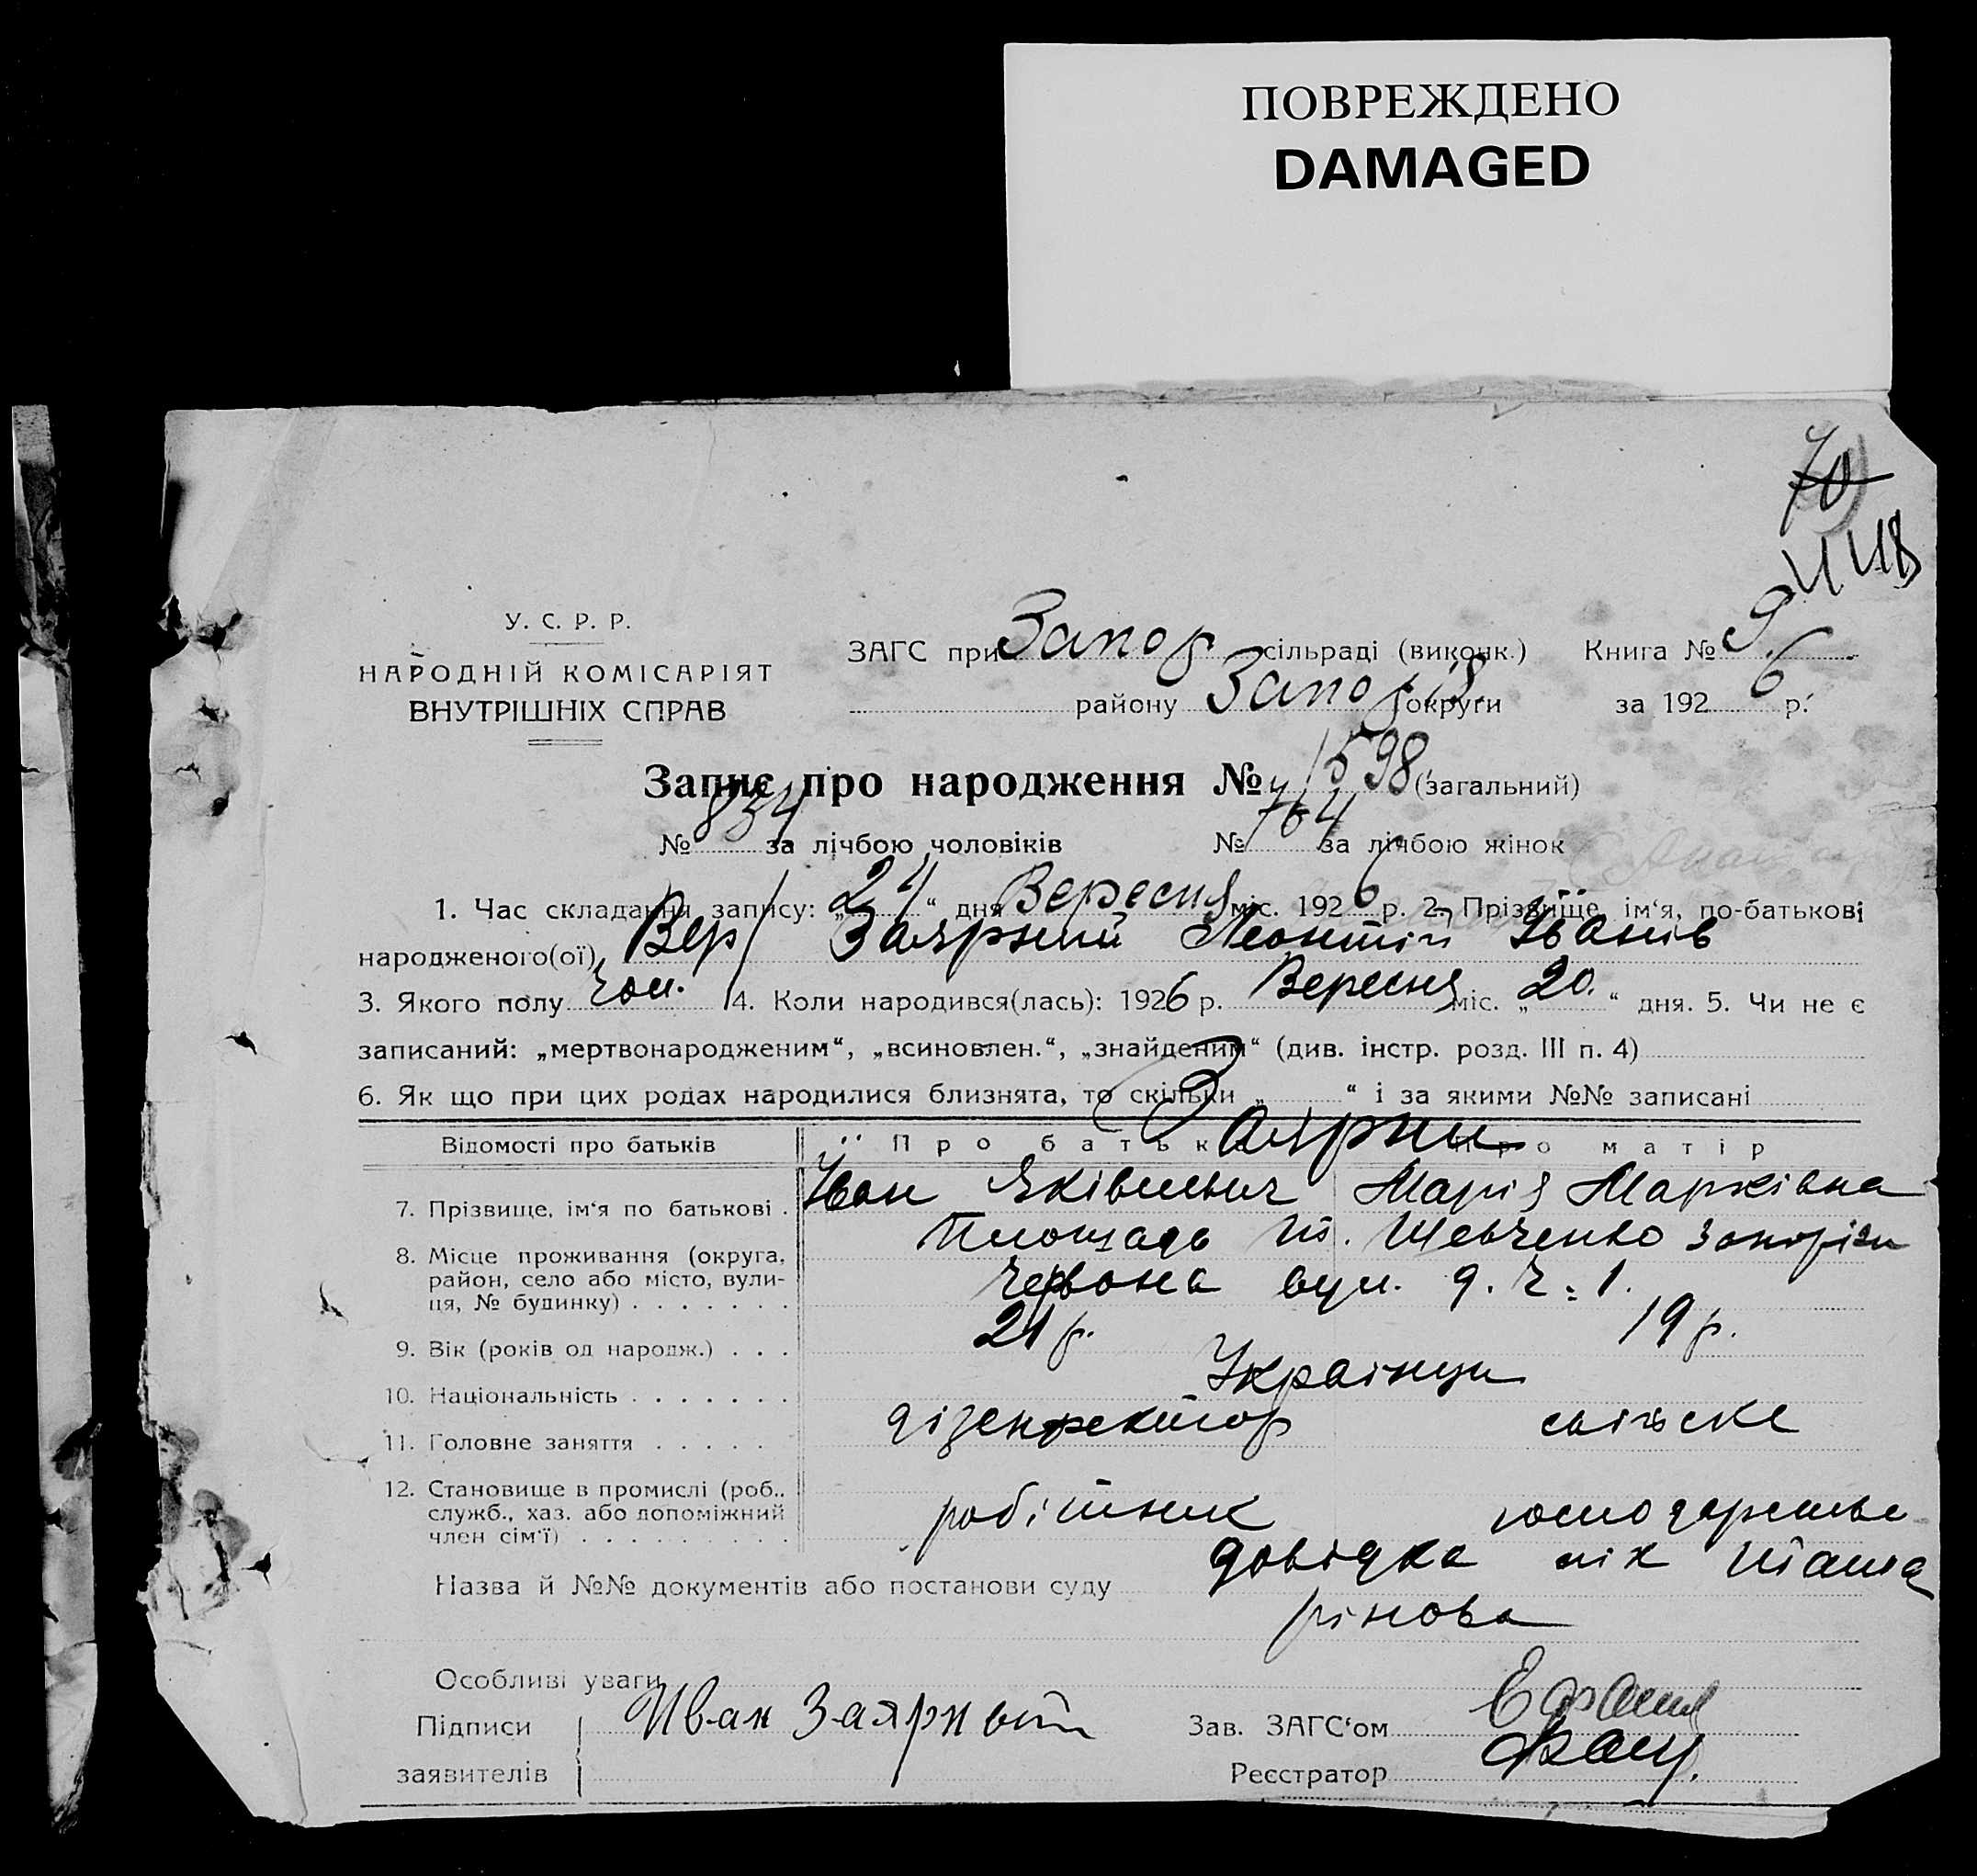 ПОВРЕЖДЕНО
DAMAGED
70
У. С. Р. Р.
НАРОДНІЙ КОМІСАРІЯТ
ВНУТРІШНІХ СПРАВ
ЗАГС при Запор сільраді (виконк.) Книга № 9.
району Запоріз округи за 1926 р.
Запис про народження № 1598 (загальний)
№ 834 за лічбою чоловіків № 764 за лічбою жінок
1. Час складання запису: „24“ дня Вересня міс. 1926 р. 2. Прізвище, ім‘я, по-батькові
народженого(ої) Вер/ Заярний Леонтій Іванів
3. Якого полу чол. 4. Коли народився(лась): 1926 р. Вересня міс. „20.“ дня. 5. Чи не є
записаний: „мертвонародженим“, „всиновлен.“, „знайденим“ (див. інстр. розд. III п. 4)
6. Як що при цих родах народилися близнята, то скільки „ “ і за якими №№ записані
Відомості про батьків Про батька Про матір
Заярни
7. Прізвище, ім‘я по батькові . Іван Яківлевич Марія Марківна
8. Місце проживання (округа, район, село або місто, вулиця, № будинку) . . . . . . . Площадь Шевченко
Червона вул. д. ч. 1.
9. Вік (років од народж.) . . . 21 р. 19 р.
10. Національність . . . . . . . Українци
11. Головне заняття . . . . . дізенфектор сільске
12. Становище в промислі (роб., служб., хаз. або допоміжний член сім‘ї) . . . . . . . . . робітник господарство
Назва й №№ документів або постанови суду довідка лік
рінова
Особливі уваги
Підписи Иван Заярный Зав. ЗАГС‘ом
заявителів Реєстратор